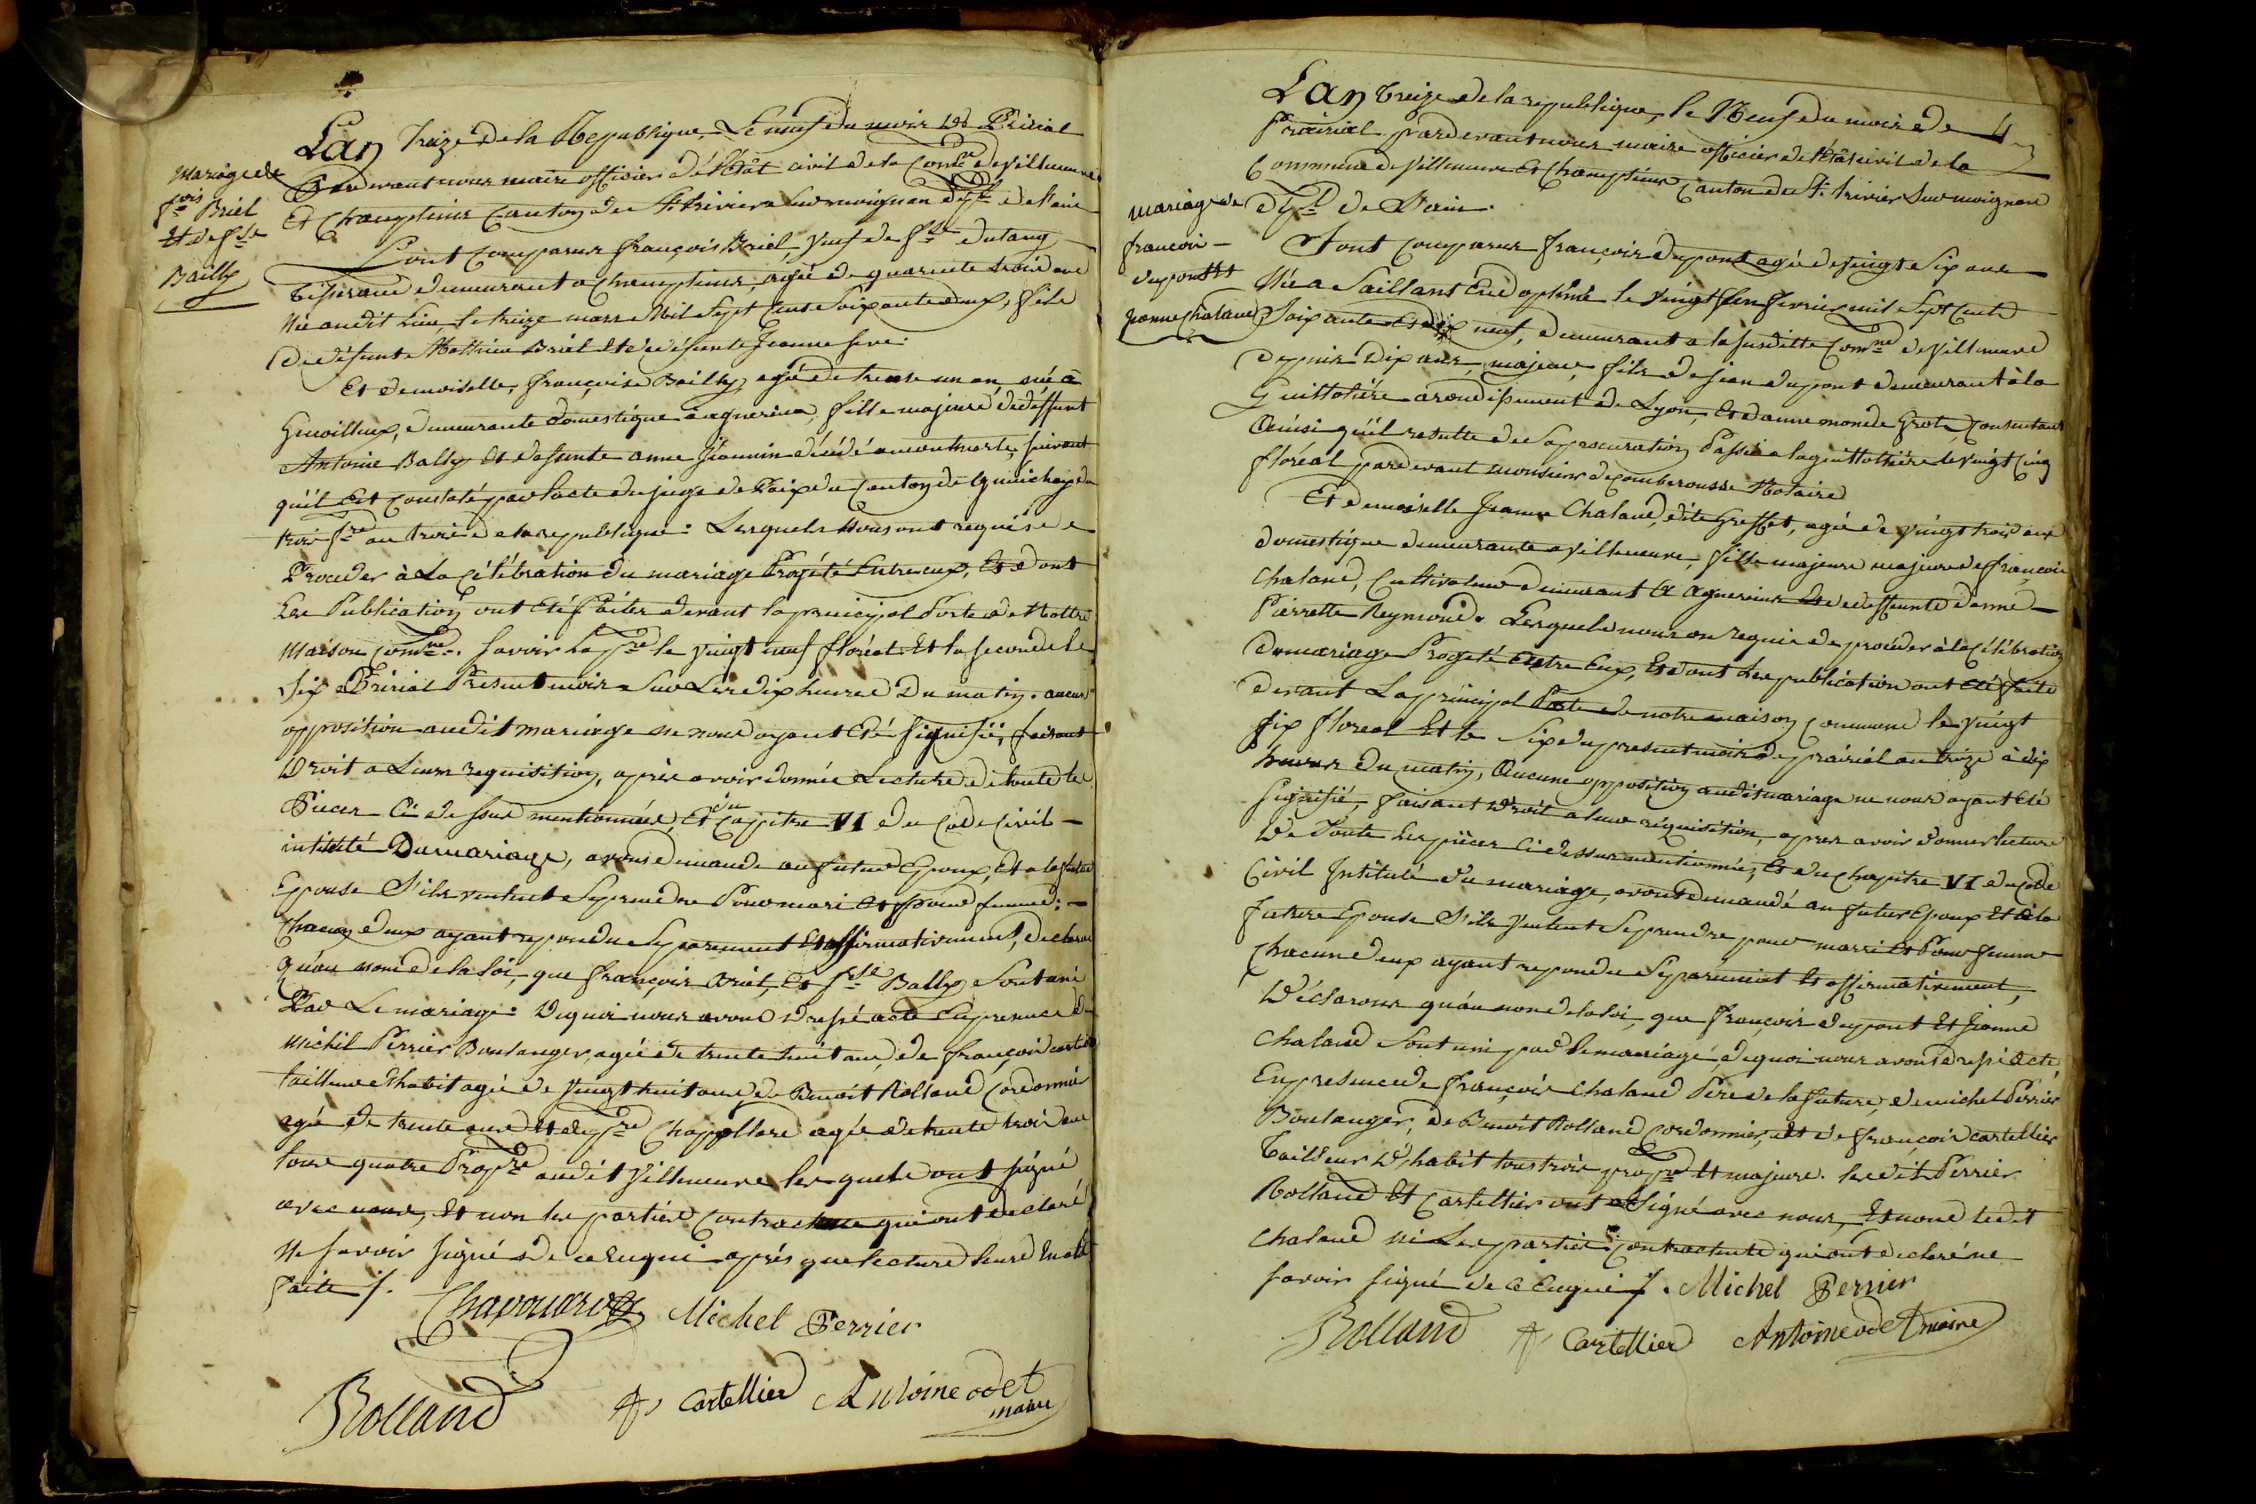 Lan treize de la Republique, Le neuf du mois de Prerial
Pardevant nous maire officier de l'état civil de la Comne de Villeneuve
Et Champteins Canton de St trivier sur moignan dept de l'ain
mariage de
fois Briel
Et de fse
Bailly
Sont Comparus françois Briel, Veuf de fse dutang
tisserand demeurant a Champteins, agé de quarente trois ans
Né audit Lieu, le treize mars Mil Sept Cent Soixante deux, fils
De défunt Mathieu Briel Et de défunte Jeanne
Et demoiselle, françoise Bailly agée de trente un an, née à
Genoillieux, demeurante domestique à agnerien, fille majeure de deffunt
Antoine Bally Et defunte anne Jeannin décédé a montmerle, suivant
qu'il Est Constaté par l'acte du juge de Paix du Canton de
trois an treize de la republique : Lesquels Nous ont requis de
Proceder à La Célébration du mariage Projété Entre eux, Et dont
Les Publication ont Eté faites devant la principal Porte de Nottre
Maison Comne. Savoir La pre le vingt neuf floréal Et la seconde le
Six Prérial Present mois Sur Les dix heures Du matin. aucune
opposition audit mariage ne nous ayant Eté Signifié, faisant
Droit a Leur requisition, après avoir donnée Lecture de toute les
Pieces Ci dessus mentionnées, Et du Cappitre VI du Code Civil
intitulé Du mariage, avons demandé au futur Epoux, Et a la future
Epouse S'ils veulent Se prendre Pour mari Et Pour femme :
Chacun deux ayant repondu Séparement Et affirmativement, declarons
Qu'au nom de la loi, que françois Briel, Et fse Bally Sont uni
Par Le mariage : De quoi nous avons dressé acte En presence de
Michel Perrier Boulanger agée de trente huit ans, de françois cartellier
tailleur d'habit agée de vingt huit ans, de Benoit Rolland Cordonnier
agée de trente ans Et de pre Chappolard agée de trente trois ans
tous quatre Propre audit Villeneuve les quels ont Signé
avec nous, Et non les parties Contractante qui ont declaré
Ne Savoir Signé de ce Enquis après que lecture leurs En a été
faite /.
Michel Perrier
Rolland
fs Cartellier
Antoine odet
maire
Lan treize de la republique, le Neuf du mois de
Prairial pardevant nous maire officier de l'état civil de la
Commune de Villeneuve Et Champteins Canton de St trivier sur moignand
dept de L'ain.
mariage de
françois
dupont Et
Jeanne Chaland
Sont Comparus françois dupont agé de vingt Six ans
Né a Saillans le vingt fevrier mil Sept Cents
Soixante Et dix neuf, demeurant a la Susditte Comne de Villeneuve
depuis Dix ans, majeur, fils de jean dupont demeurant à la
Guittotiére arondissement de Lyon, Et danne Consentant
Ainsi qu'il resulte de Sa procuration Passée a la guittottière le vingt Cinq
floréal pardevant monsieur decomberousse Notaire
Et demoiselle Jeanne Chaland, dite Greffet, agée de vingt trois ans
domestique demeurante a Villeneuve, fille majeure majeure de françois
Chaland, Cultivateur demeurant a agnereins Et de deffunte danne
Pierrette Reymond. Lesquels nous on requis de procéder à la Célébration
Du mariage Progeté Entre Eux, Et dont Les publication ont Eté faite
devant La principal Porte de notre maison Commune le vingt
Six floreal Et le Six du present mois de prairial an treize à dix
heures du matin, Aucune opposition audit mariage ne nous ayant Eté
Signifié, faisant Droit a leur réquisition, apres avoir donner lecture
De Toute Les pièces Ci dessus mentionnée, Et du Chapitre VI du Code
Civil Intitulé du mariage, avons demandé au futur Epoux Et à la
future Epouse S'ils Veulent Se prendre pour marri Et Pour femme
Chacune deux ayant repondu Séparement Et affirmativement,
Déclarons qu'au nom de la loi, que françois dupont Et Jeanne
Chaland Sont uni par le mariagé, de quoi nous avons dressé Acte
En presence de françois Chaland Pére de la future, de michel Perrier
Boulanger, de Benoit Rolland Cordonnier, et de françois cartellier
Tailleur D'habit tous trois propre Et majeure. les dits Perrier
Rolland Et Cartellier ont Signé avec nous, Et nond ledit
Chaland ni Les parties Contractente qui ont declaré ne
Savoir Signé de Ce Enquis /. Michel Perrier
Rolland
fs Cartellier
Antoine odet maire